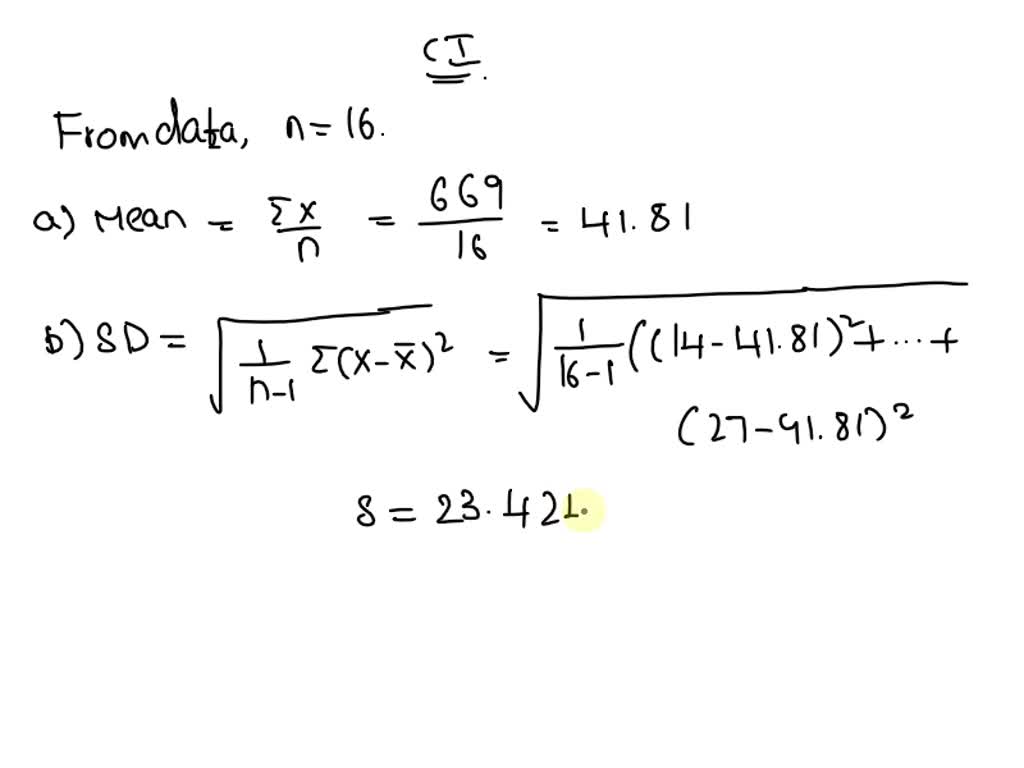 CI.
From data, n = 16.
a) Mean = Σx/n = 669/16 = 41.81
b) SD = √(1/(n-1) Σ(x-x̄)²) = √(1/(16-1) ((14-41.81)² + ... +
(27-41.81)²
S = 23.424.